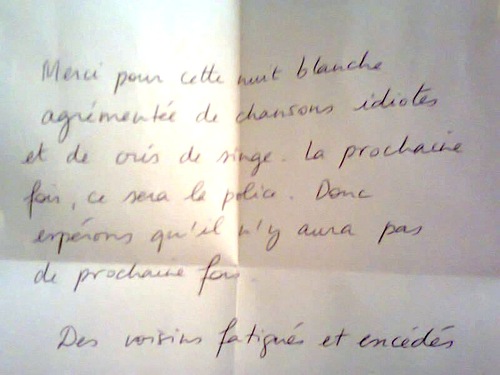 Merci pour cette nuit blanche
agrémentée de chansons idiotes
et de cris de singe. La prochaine
fois, ce sera la police. Donc
espérons qu'il n'y aura pas
de prochaine fois.
Des voisins fatigués et excédés